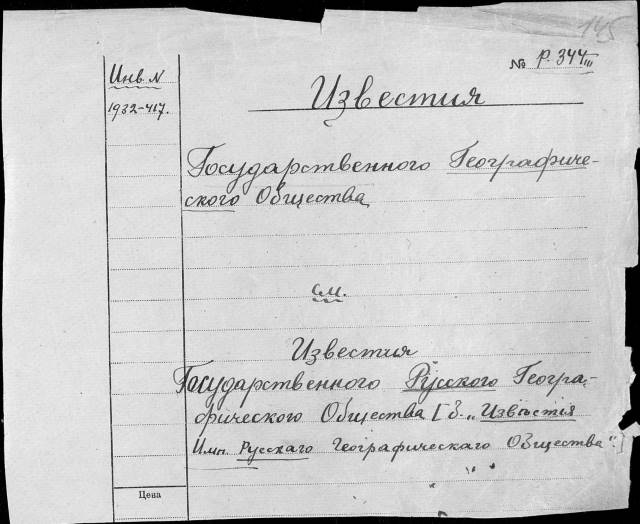 145
№ Р. 344 III
Инв. N
1932-417.
Известия
Государственного Географиче-
ского Общества
см.
Известия
Государственного Русского Геогра-
фического Общества [б. „Извѣстія
Имп. Русскаго Географическаго Общества".]
Цена